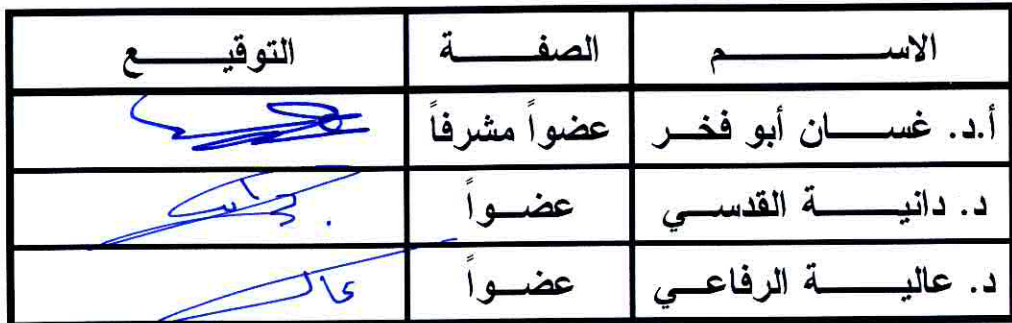 الاسم الصفة التوقيع
أ.د. غسان أبو فخر عضواً مشرفاً
د. دانية القدسي عضواً
د. عالية الرفاعي عضواً